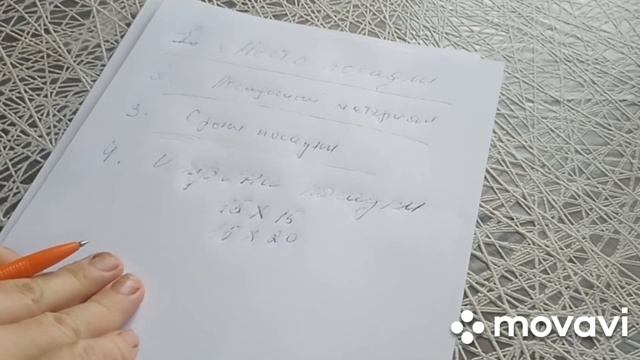 1. Место посадки
2. Посадочный материал
3. Сроки посадки
4. посадки
15 х 15
х 20
movavi